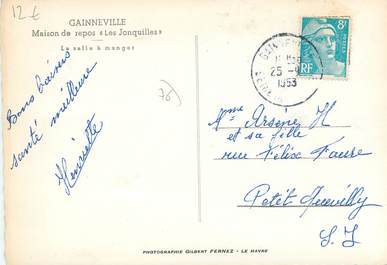 12 €
GAINNEVILLE
Maison de repos "Les Jonquilles"
La salle à manger
Bons baisers
santé meilleure
Henriette
76
8F
RF
25
1953
Mme Arsène H
et sa fille
rue Félix Faure
Petit Quevilly
S. I
PHOTOGRAPHIE GILBERT FERNEZ - LE HAVRE